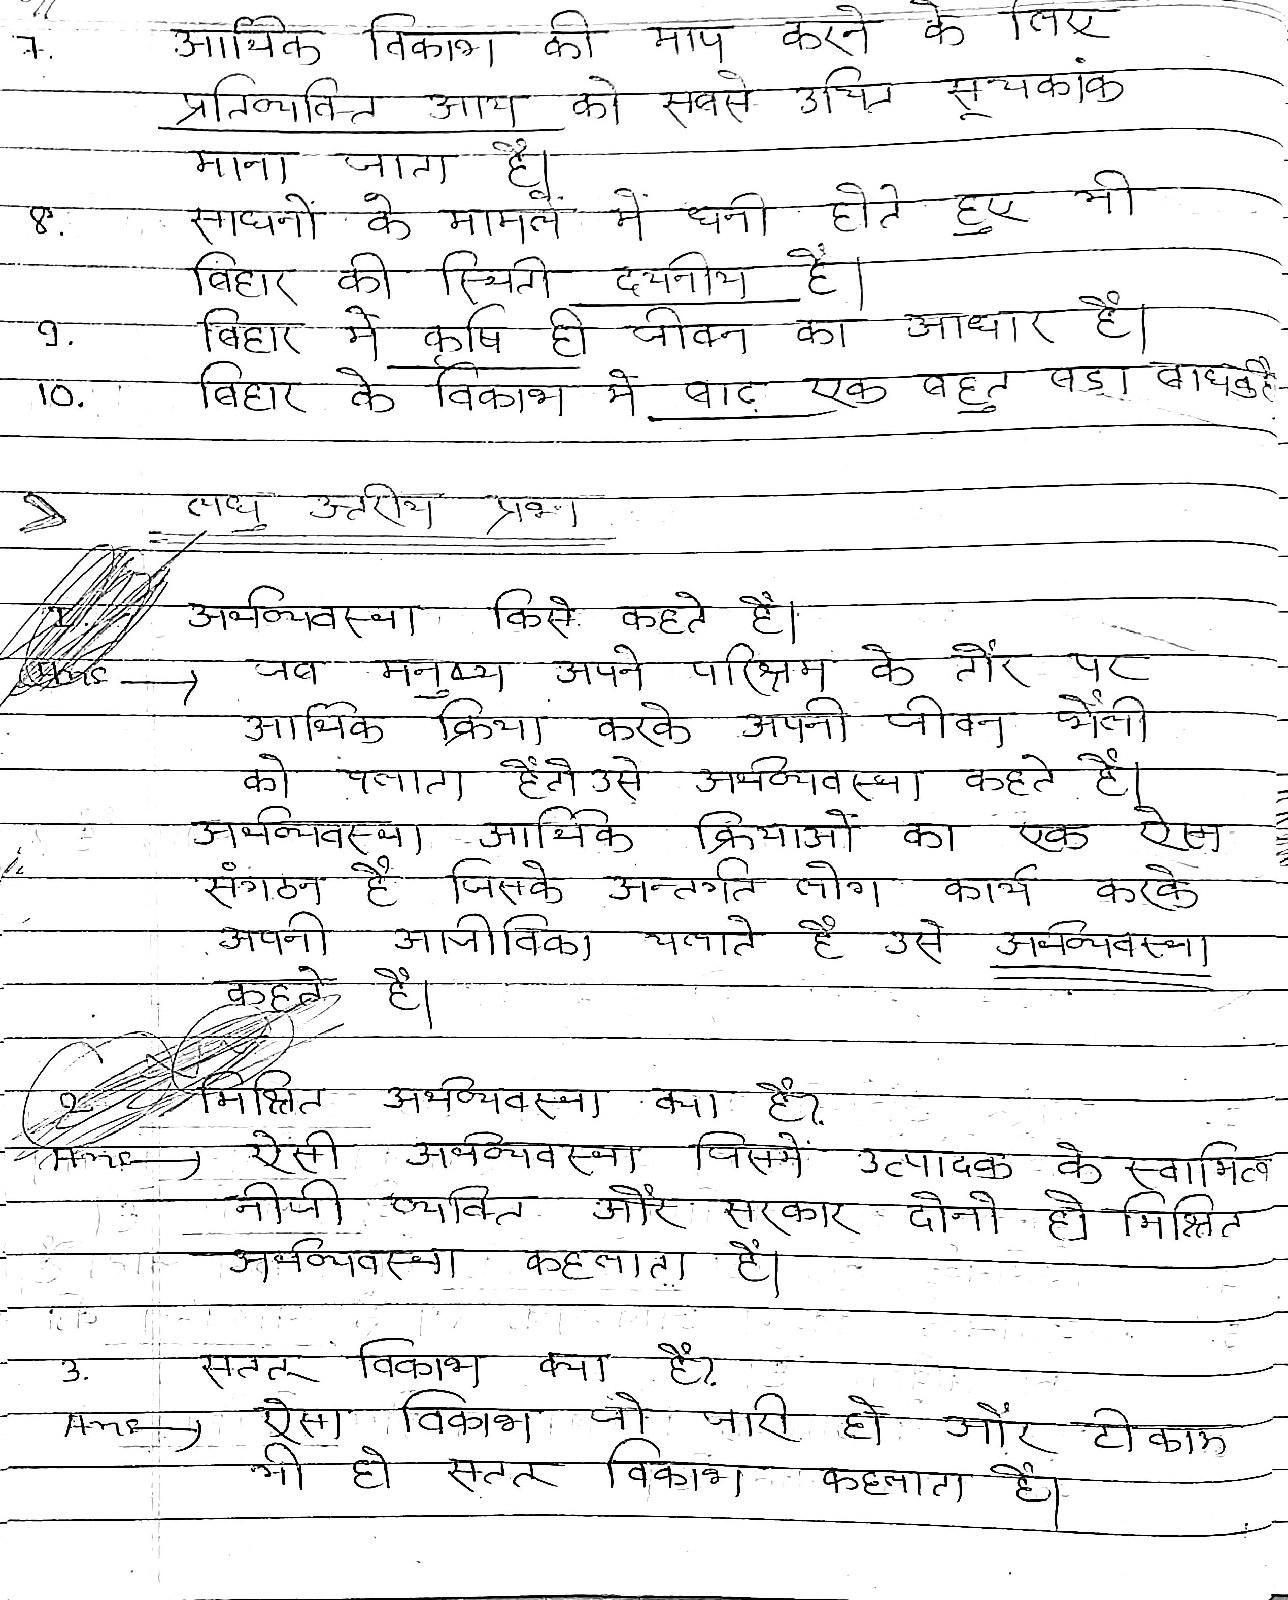 7. आर्थिक विकाश की माप करने के लिए
प्रतिव्यक्ति आय को सबसे उचित सूचकांक
माना जाता है।
8. साधनों के मामले में धनी होते हुए भी
बिहार की स्थिती दयनीय है।
9. बिहार में कृषि ही जीवन का आधार है।
10. बिहार के विकाश में बाढ़ एक बहुत बड़ा बाधक है
लघु उत्तरीय प्रश्न
1. अर्थव्यवस्था किसे कहते हैं।
Ans → जब मनुष्य अपने परिश्रम के तौर पर
आर्थिक क्रिया करके अपनी जीवन शैली
को चलाता है तो उसे अर्थव्यवस्था कहते हैं।
अर्थव्यवस्था आर्थिक क्रियाओं का एक ऐसा
संगठन है जिसके अन्तर्गत लोग कार्य करके
अपनी आजीविका चलाते है उसे अर्थव्यवस्था
कहते हैं।
2. मिश्रित अर्थव्यवस्था क्या है?
Ans → ऐसी अर्थव्यवस्था जिसमें उत्पादक के स्वामित्व
नीजी व्यक्ति और सरकार दोनो हो मिश्रित
अर्थव्यवस्था कहलाता है।
3. सतत् विकाश क्या है?
Ans → ऐसा विकाश जो जारी हो और टीकाऊ
भी हो सतत् विकाश कहलाता है।